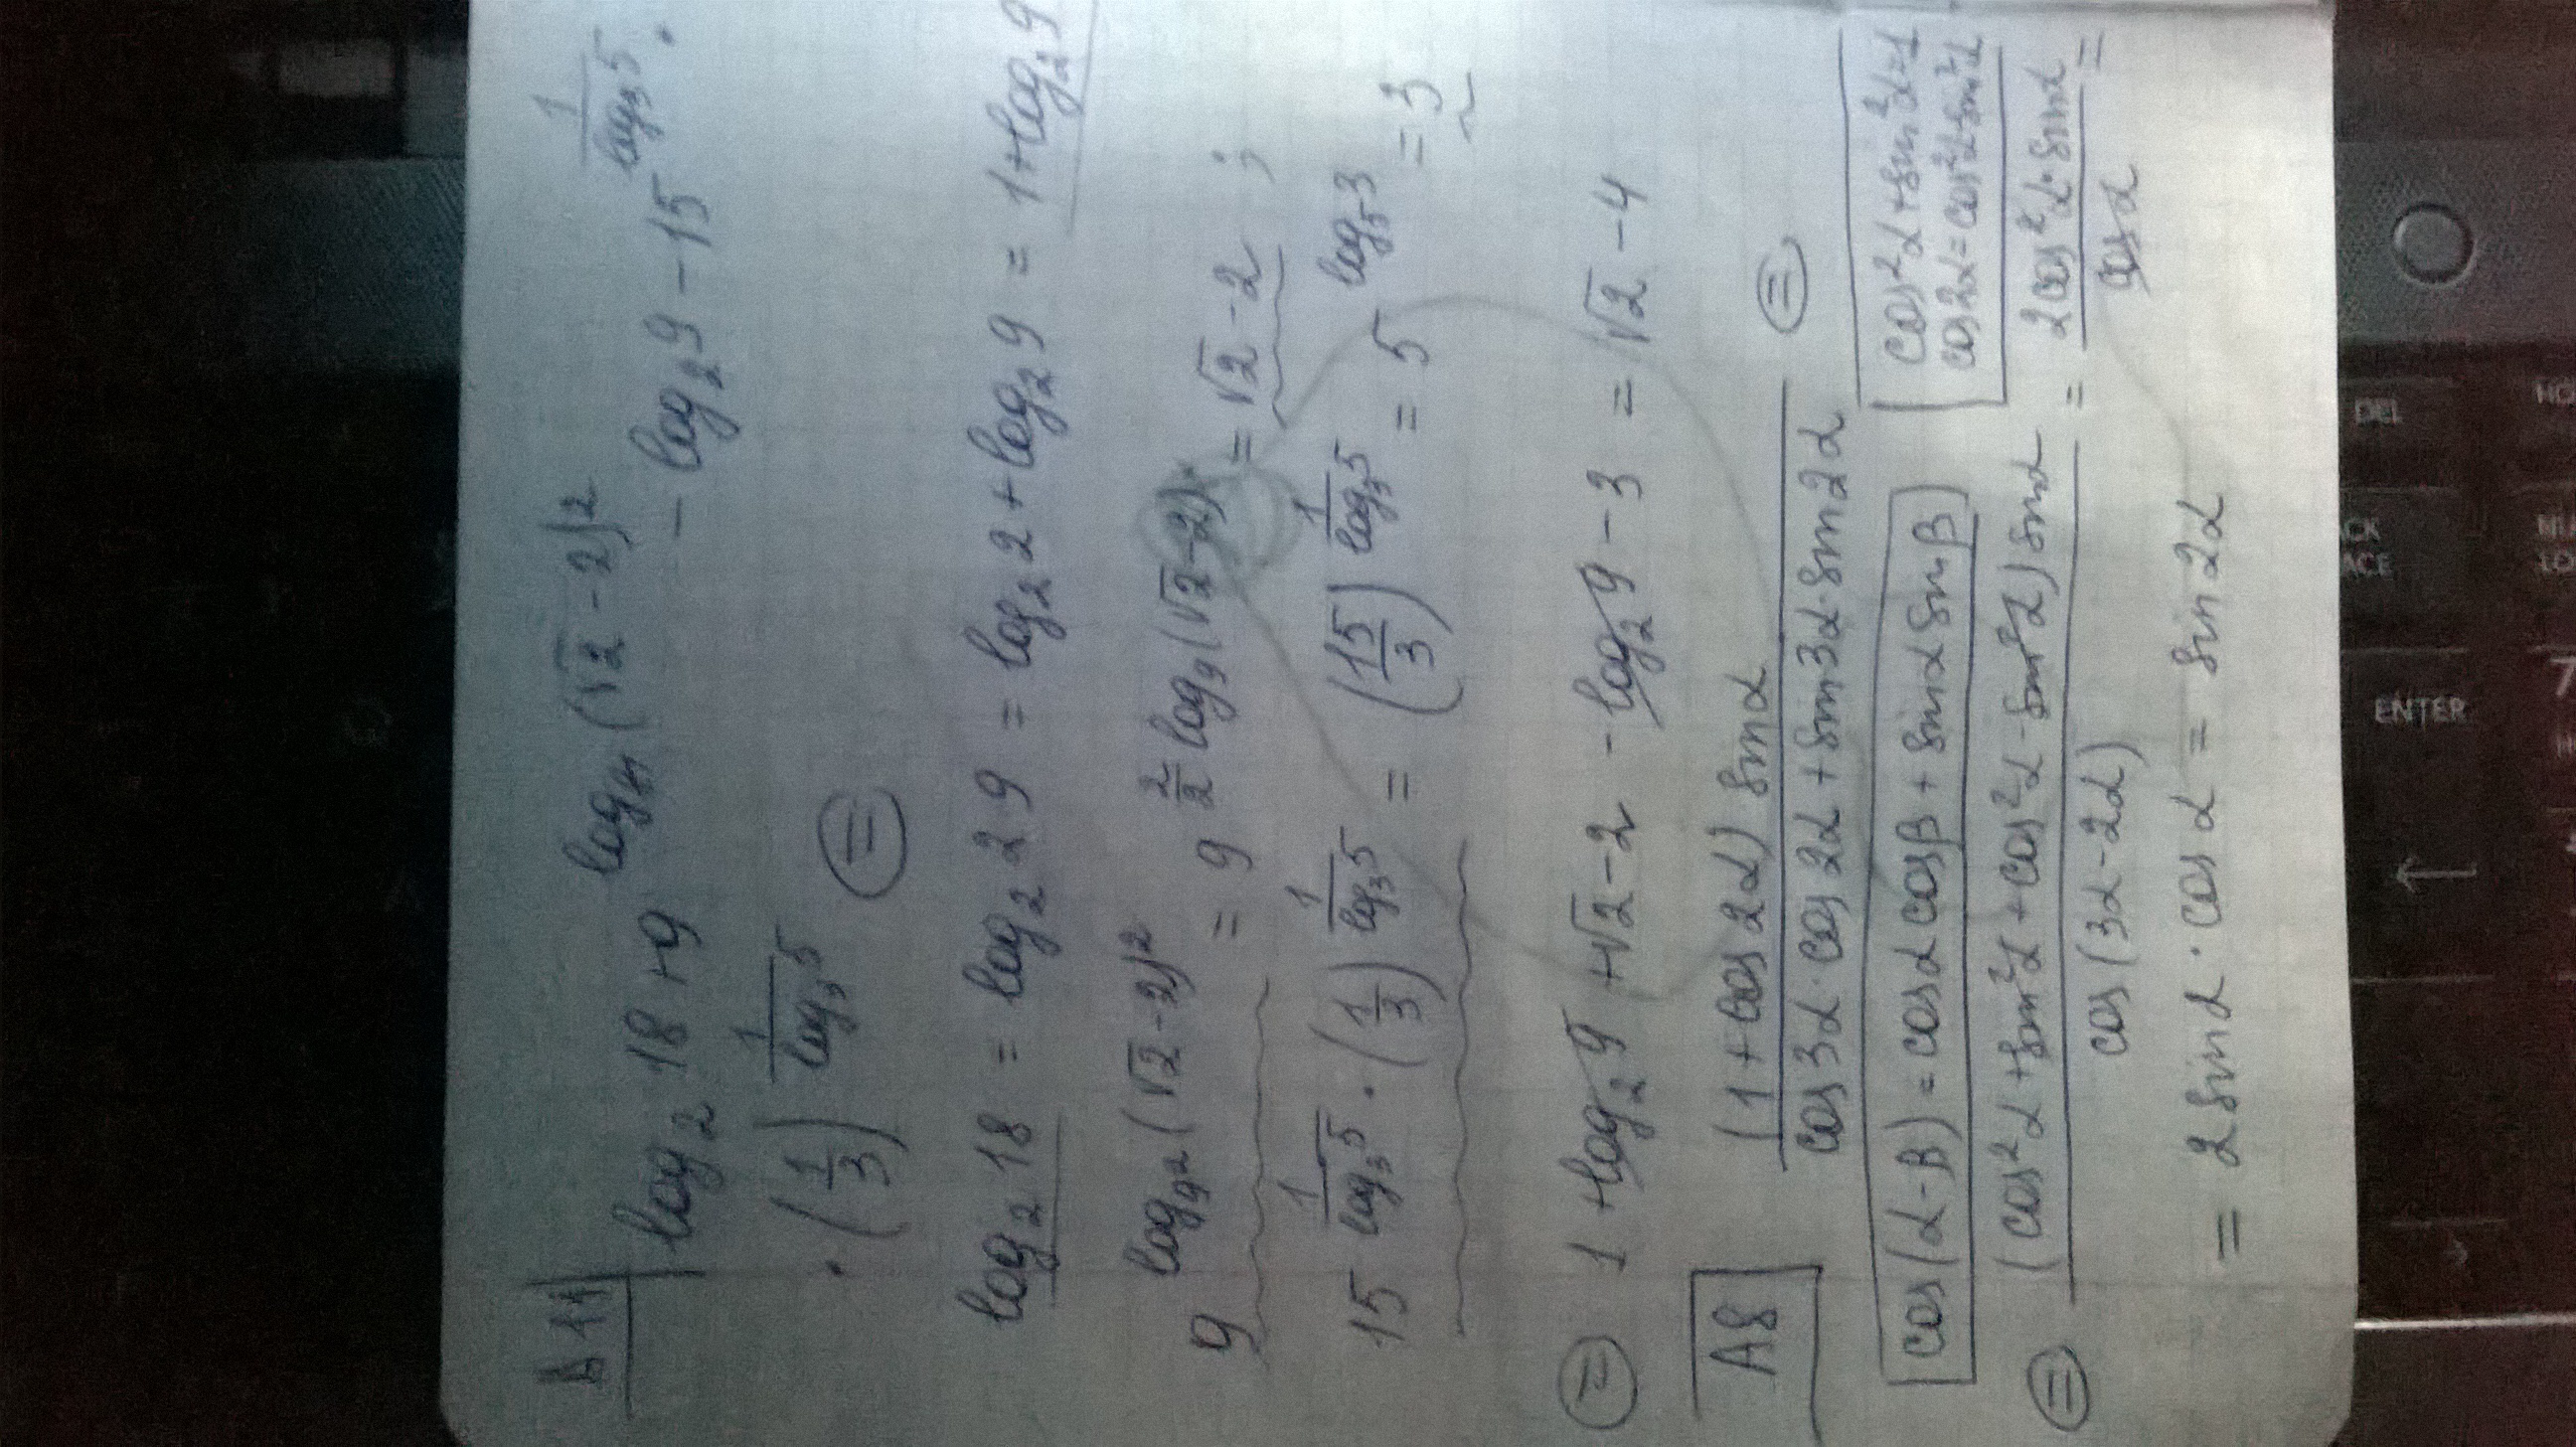 A11 log₂ 18 + 9^(log₈₁ (√2 - 2)²) - log₂ 9 - 15^(1/log₃ 5) ·
· (1/3)^(1/log₃ 5) ⊜
log₂ 18 = log₂ 2·9 = log₂ 2 + log₂ 9 = 1 + log₂ 9
9^(log_9² (√2 - 2)²) = 9^(2/2 log₉ (√2 - 2)) = √2 - 2 ;
15^(1/log₃ 5) · (1/3)^(1/log₃ 5) = (15/3)^(1/log₃ 5) = 5^(log₅ 3) = 3
⊜ 1 + log₂ 9 + √2 - 2 - log₂ 9 - 3 = √2 - 4
A8 (1 + cos 2α) sin α / (cos 3α · cos 2α + sin 3α · sin 2α) ⊜
cos (α - β) = cos α cos β + sin α sin β
cos² α + sin² α = 1
cos 2α = cos² α - sin² α
⊜ (cos² α + sin² α + cos² α - sin² α) sin α / cos (3α - 2α) = 2 cos² α · sin α / cos α =
= 2 sin α · cos α = sin 2α
DEL
ENTER
7